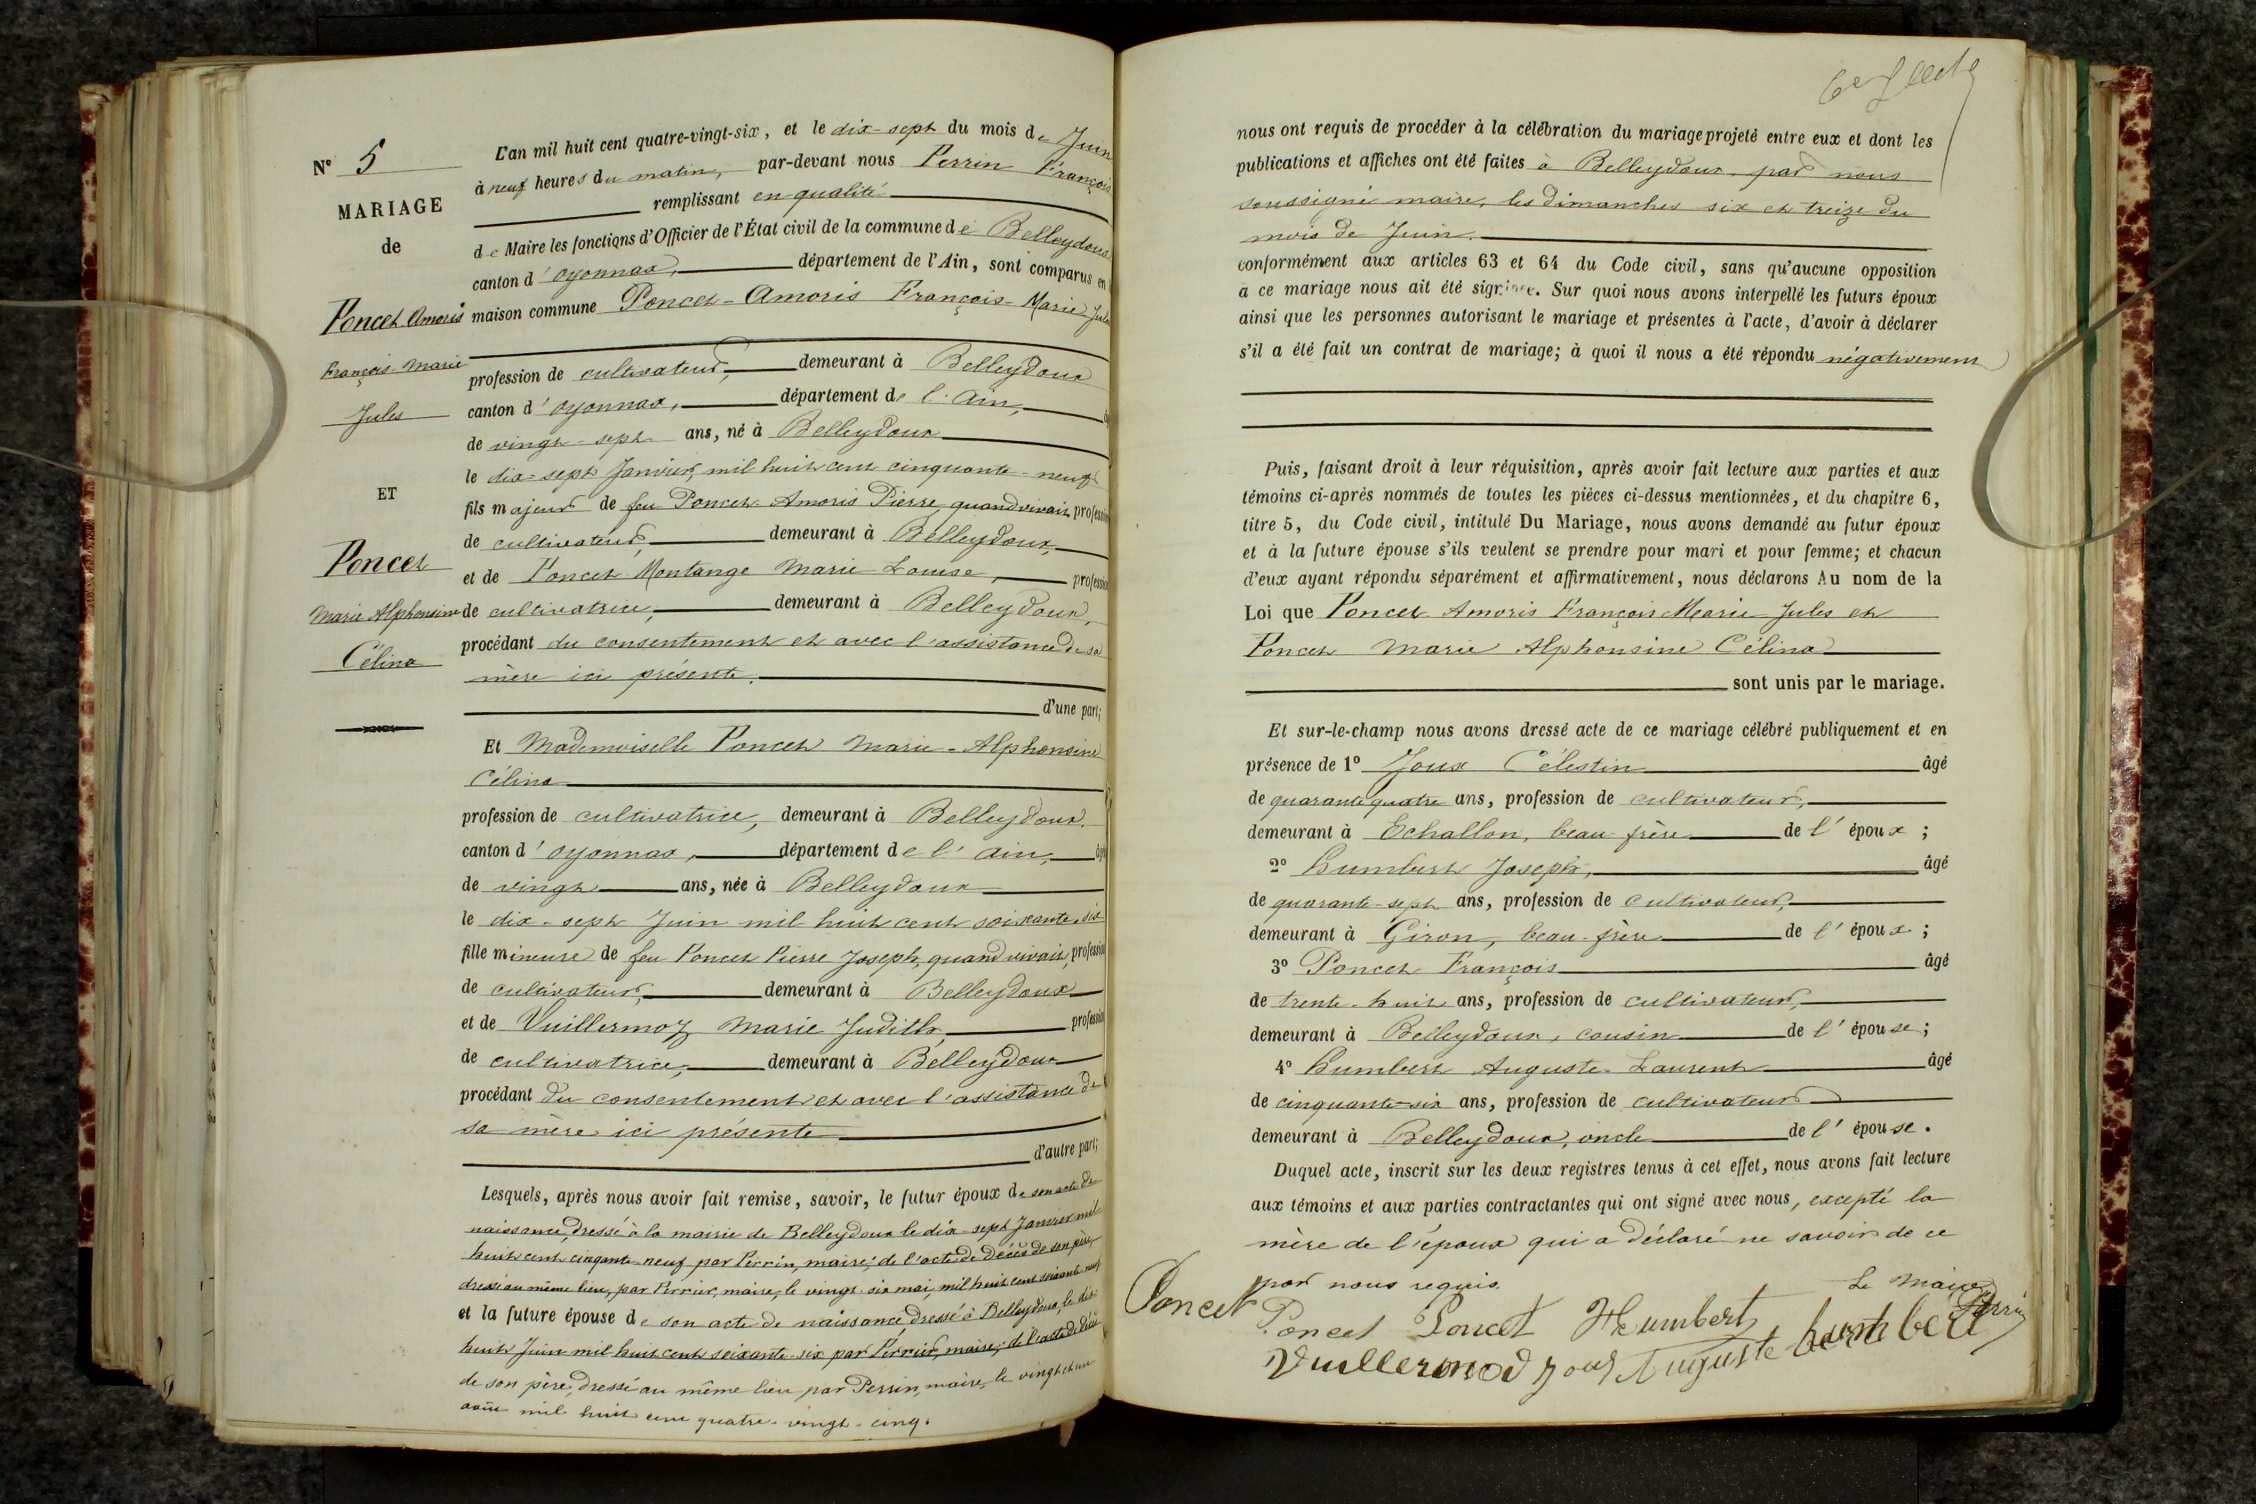 N° 5
MARIAGE
de
Poncet Amoris
François-Marie
Jules
ET
Poncet
Marie Alphonsine
Célina
L'an mil huit cent quatre-vingt-six, et le dix-sept du mois de Juin
à neuf heures du matin, par-devant nous Perrin François
remplissant en qualité
de Maire les fonctions d'Officier de l'État civil de la commune de Belleydoux
canton d'oyonnax, département de l'Ain, sont comparus en
maison commune Poncet-Amoris François-Marie Jules
profession de cultivateur, demeurant à Belleydoux
canton d'oyonnax, département de l'Ain,
de vingt-sept ans, né à Belleydoux
le dix-sept Janvier, mil huit cent cinquante-neuf
fils majeur de feu Poncet-Amoris Pierre, quand vivait, profession
de cultivateur, demeurant à Belleydoux,
et de Poncet Montange Marie Louise, profession
de cultivatrice, demeurant à Belleydoux,
procédant du consentement et avec l'assistance de sa
mère ici présente.
d'une part;
Et Mademoiselle Poncet Marie-Alphonsine
Célina
profession de cultivatrice, demeurant à Belleydoux.
canton d'oyonnax, département de l'Ain, âgée
de vingt ans, née à Belleydoux
le dix-sept Juin mil huit cent soixante-six
fille mineure de feu Poncet Pierre Joseph, quand vivait, profession
de cultivateur, demeurant à Belleydoux
et de Vuillermoz Marie Judith, profession
de cultivatrice, demeurant à Belleydoux
procédant du consentement et avec l'assistance de
sa mère ici présente
d'autre part;
Lesquels, après nous avoir fait remise, savoir, le futur époux de son acte de
naissance, dressé à la mairie de Belleydoux le dix-sept Janvier mil
huit cent cinqante-neuf par Perrin, maire; de l'acte de décès de son père,
dressé au même lieu, par Perrier, maire, le vingt-six mai, mil huit cent soixante-neuf
et la future épouse de son acte de naissance, dressé à Belleydoux, le dix-
huit Juin mil huit cent soixante-six par Perrier, maire; de l'acte de décès
de son père, dressé au même lieu par Perrin, maire, le vingt et un
août mil huit cent quatre-vingt-cinq.
nous ont requis de procéder à la célébration du mariage projeté entre eux et dont les
publications et affiches ont été faites à Belleydoux par nous
soussigné maire, les dimanches six et treize du
mois de Juin.
conformément aux articles 63 et 64 du Code civil, sans qu'aucune opposition
à ce mariage nous ait été signifiée. Sur quoi nous avons interpellé les futurs époux
ainsi que les personnes autorisant le mariage et présentes à l'acte, d'avoir à déclarer
s'il a été fait un contrat de mariage; à quoi il nous a été répondu négativement
Puis, faisant droit à leur réquisition, après avoir fait lecture aux parties et aux
témoins ci-après nommés de toutes les pièces ci-dessus mentionnées, et du chapitre 6,
titre 5, du Code civil, intitulé Du Mariage, nous avons demandé au futur époux
et à la future épouse s'ils veulent se prendre pour mari et pour femme; et chacun
d'eux ayant répondu séparément et affirmativement, nous déclarons Au nom de la
Loi que Poncet Amoris François Marie Jules et
Poncet Marie Alphonsine Célina
sont unis par le mariage.
Et sur-le-champ nous avons dressé acte de ce mariage célébré publiquement et en
présence de 1° Joux Célestin âgé
de quarante quatre ans, profession de cultivateur,
demeurant à Echallon, beau-frère de l'époux;
2° humbert Joseph, âgé
de quarante-sept ans, profession de cultivateur,
demeurant à Giron, beau-frère de l'époux;
3° Poncet François âgé
de trente-huit ans, profession de cultivateur,
demeurant à Belleydoux, cousin de l'épouse;
4° humbert Auguste-Laurent âgé
de cinquante-six ans, profession de cultivateur
demeurant à Belleydoux, oncle de l'épouse.
Duquel acte, inscrit sur les deux registres tenus à cet effet, nous avons fait lecture
aux témoins et aux parties contractantes qui ont signé avec nous, excepté la
mère de l'époux qui a déclaré ne savoir de ce
par nous requis.
Le Maire
Poncet Poncet Poncet Humbert Perrin
Vuillermod Joux Auguste humbert